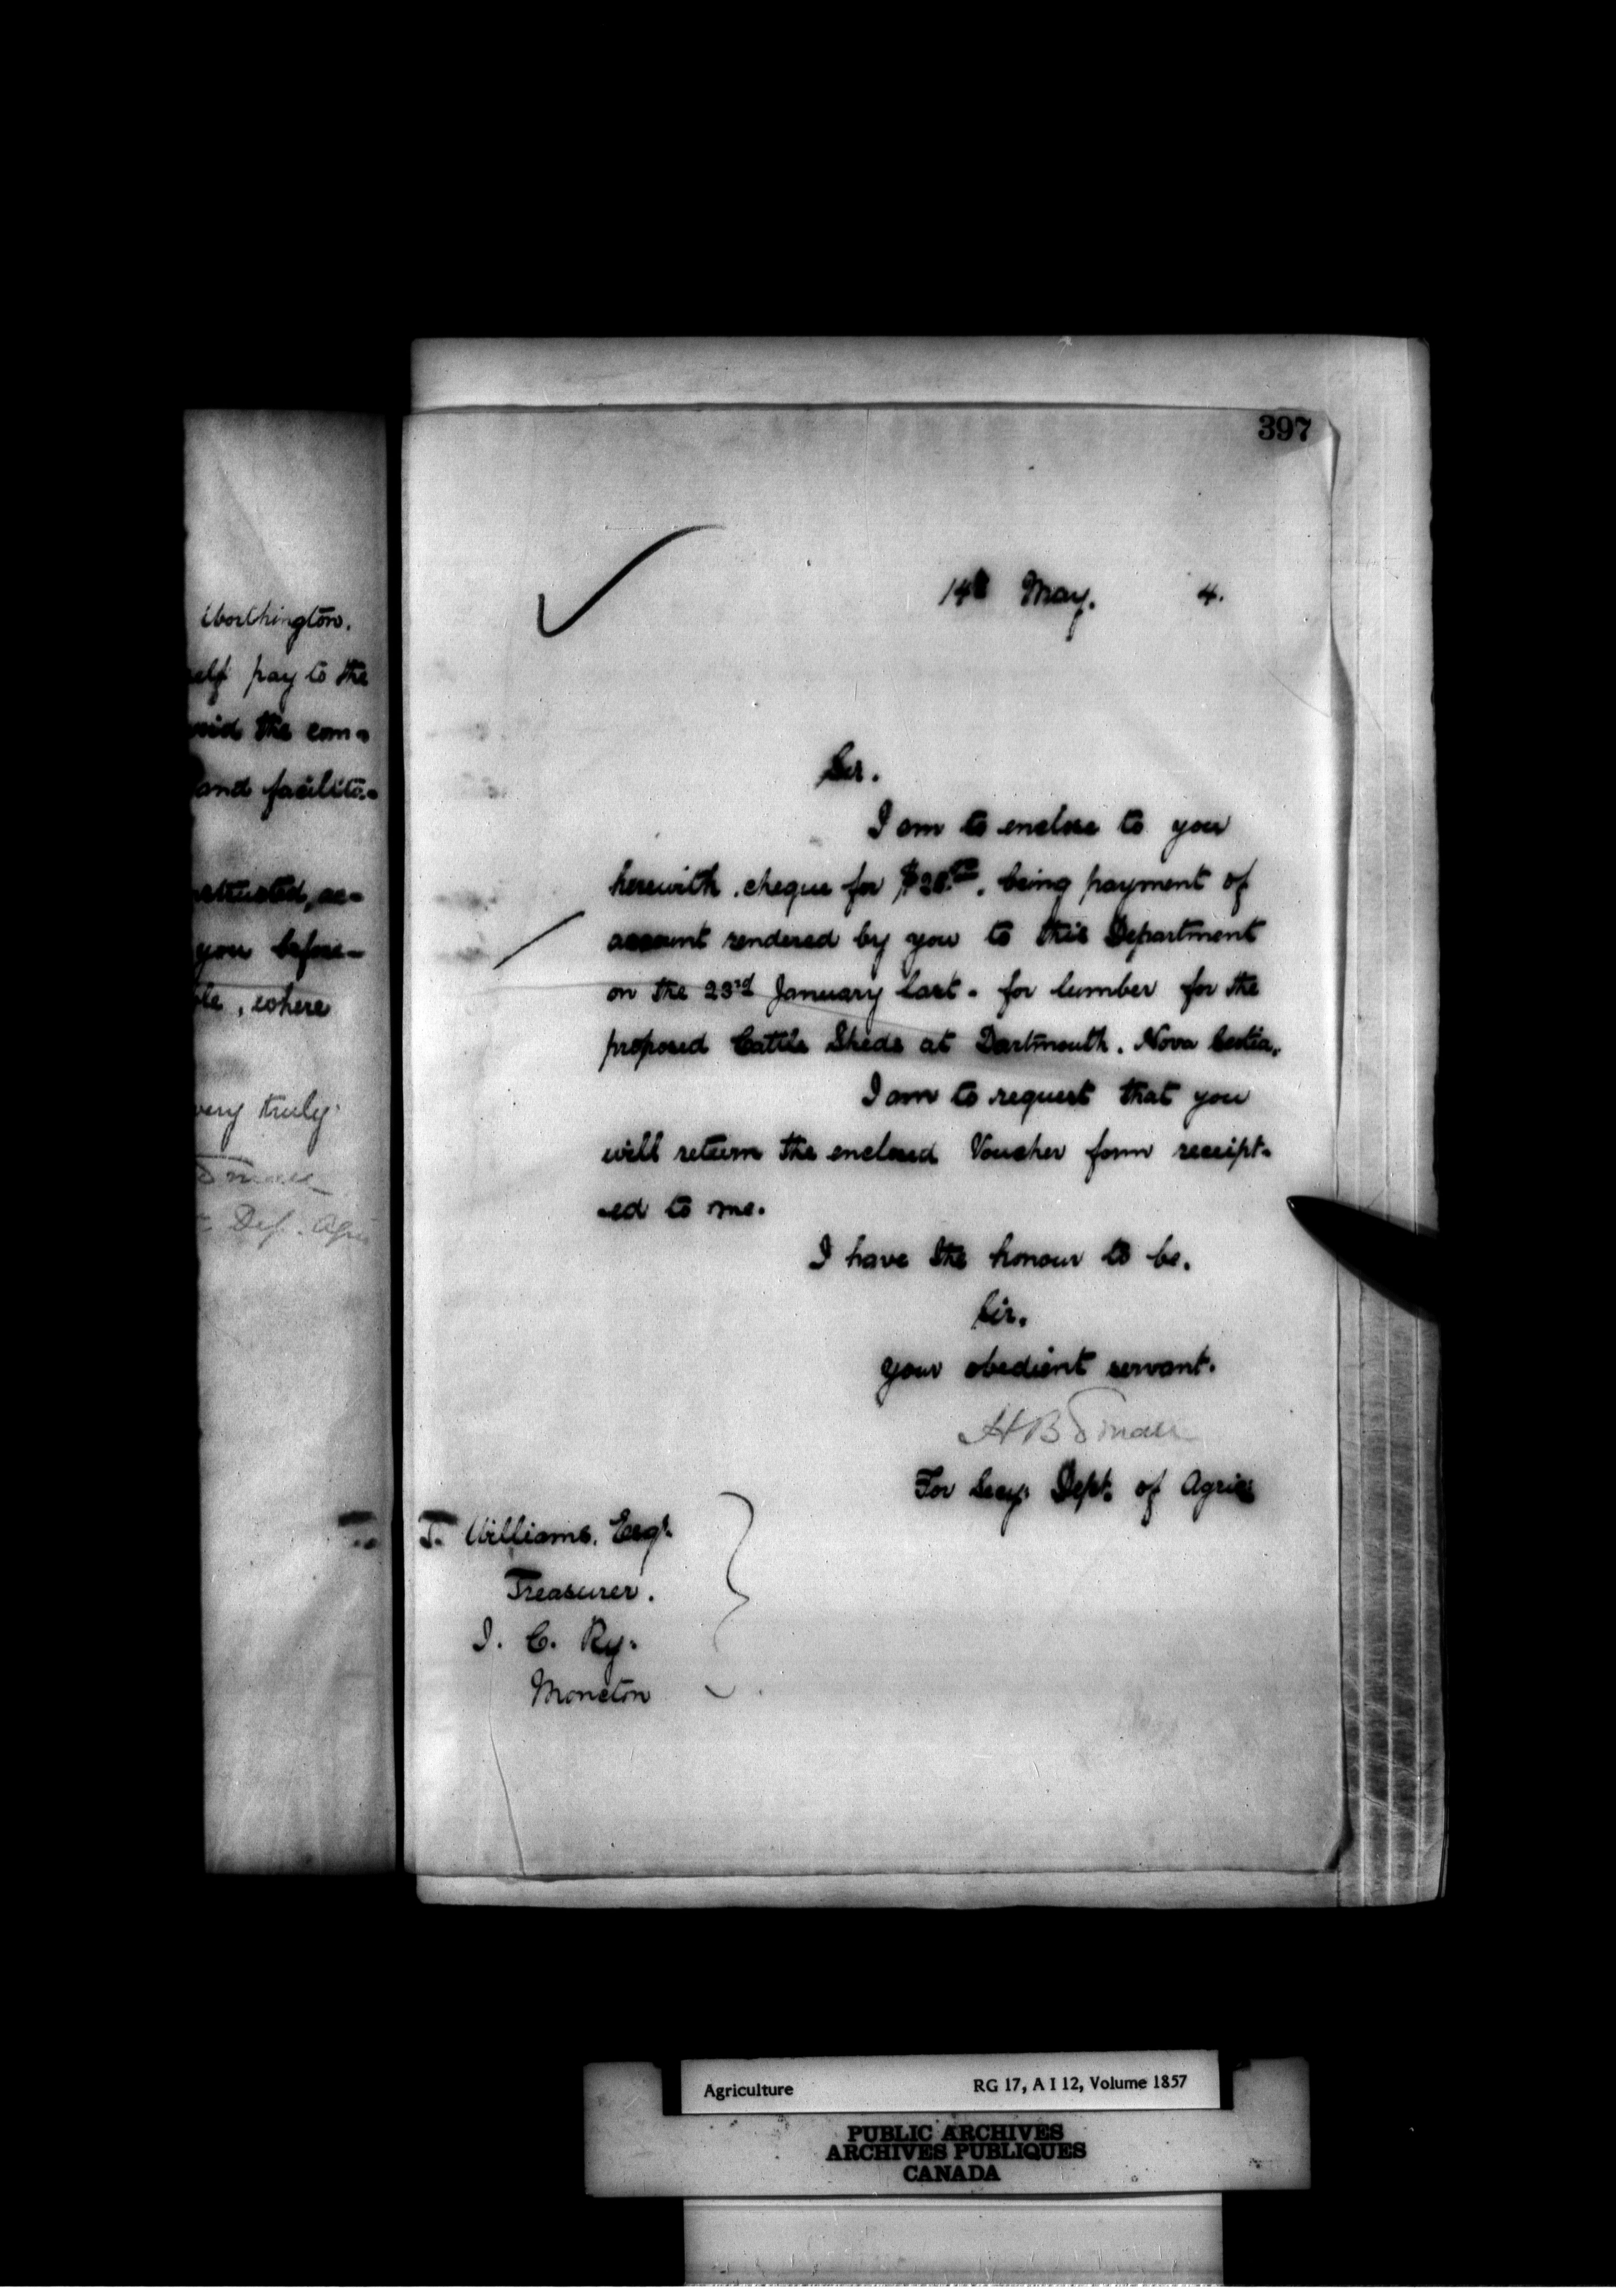 Worthington.
self pay to the
void the com-
and facilita-
you before-
ble, where
very truly
Small
Dep. Agri
397
14th May. 4.
Sir.
I am to enclose to you
herewith, cheque for being payment of
account rendered by you to this Department
on the 23rd January last - for lumber for the
proposed Cattle Sheds at Dartmouth. Nova Scotia.
I am to request that you
will return the enclosed Voucher form receipt-
-ed to me.
I have the honour to be.
Sir.
Your obedient servant.
H B Small
For Secy. Dept. of Agric
J. Williams. Esqr.
Treasurer.
I. C. Ry.
Moncton
Agriculture RG 17, A I 12, Volume 1857
PUBLIC ARCHIVES
ARCHIVES PUBLIQUES
CANADA